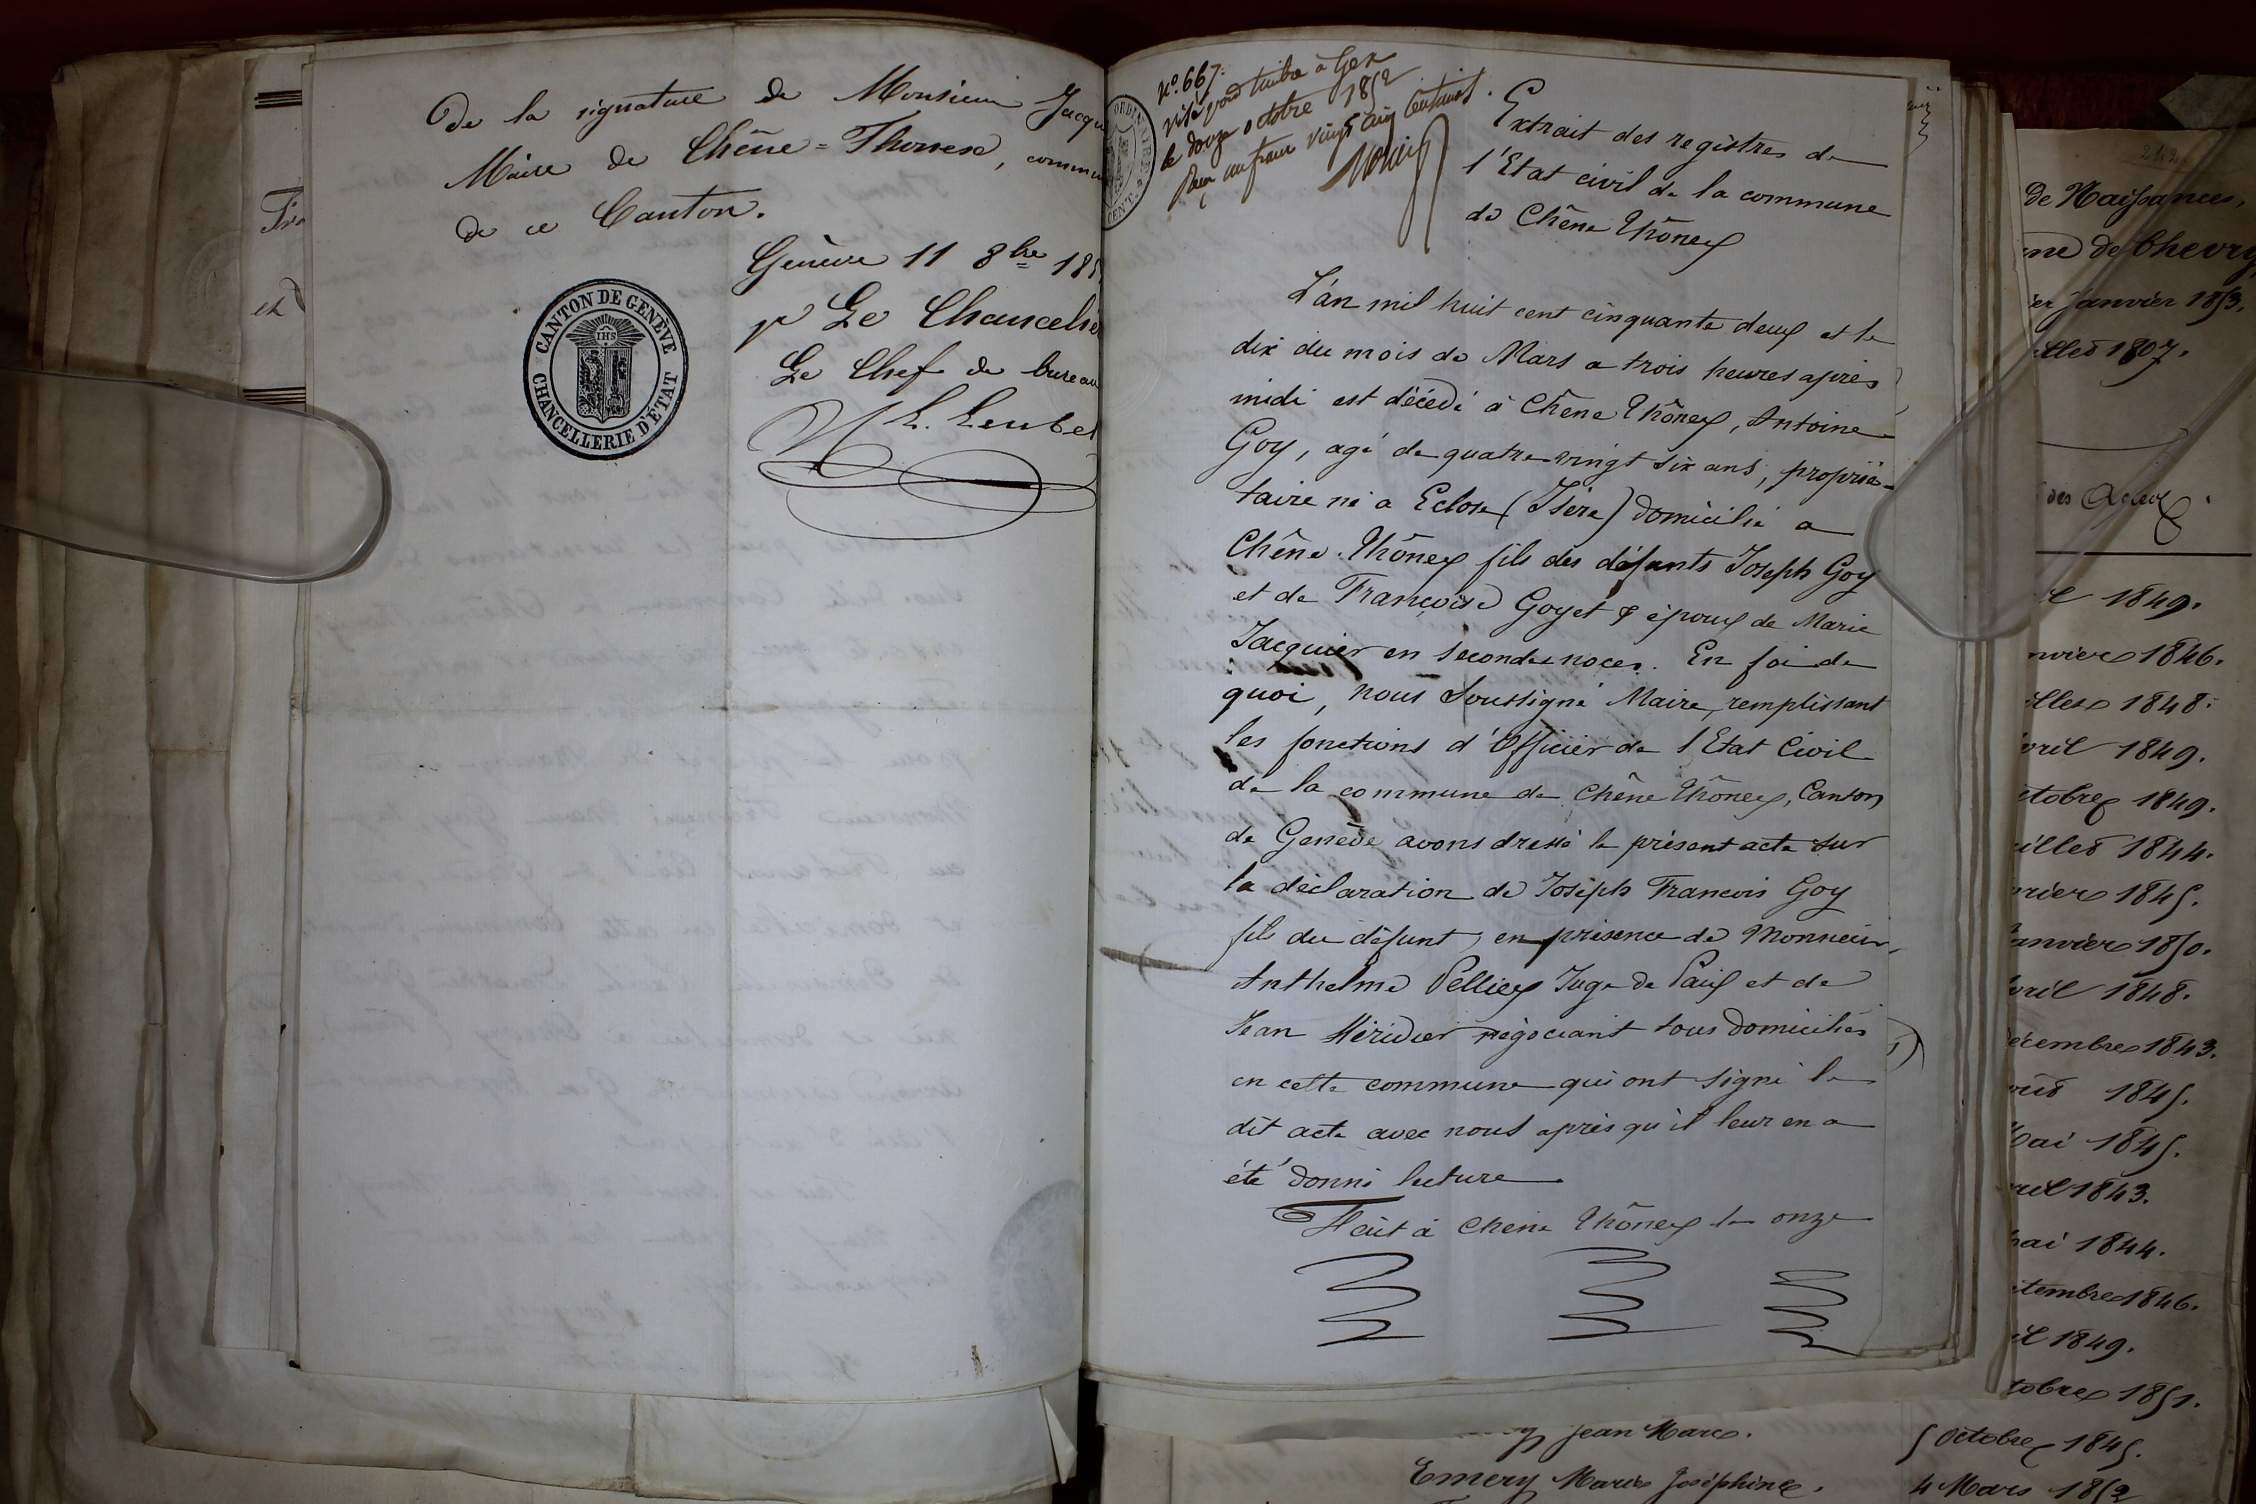 De la signature de Monsieur Jacqu
Maire de Chêne=Thonex, commu
de ce Canton.
Genève 11 8bre 185
pr Le Chancelie
Le Chef de bureau
CANTON DE GENÈVE
IHS
CHANCELLERIE D'ÉTAT
No. 667.
visé pour timbre à Gex
le douze octobre 1852
Reçu un franc vingt cinq centimes.
Extrait des registres de
l'Etat civil de la commune
de Chêne Thônex
L'an mil huit cent cinquante deux et le
dix du mois de Mars a trois heures après
midi est décedé à Chêne Thônex, Antoine
Goy, agé de quatre vingt six ans, proprié-
taire né a Eclose (Isère) domicilié a
Chêne-Thônex fils des défunts Joseph Goy
et de Françoise Goyet & époux de Marie
Jacquier en secondes noces. En foi de
quoi, nous Soussigné Maire, remplissant
les fonctions d'Officier de l'Etat Civil
de la commune de Chêne Thônex, Canton
de Genève avons dressé le présent acte sur
la déclaration de Joseph François Goy
fils du défunt, en présence de Monsieur
Anthelme Pelliex Juge de Paix et de
Jean Méridier négociant tous domiciliés
en cette commune qui ont signé le
dit acte avec nous après qu'il leur en a
été donné lecture
Fait à Chêne Thônex le onze
De Naissances,
ne de Chevry
er Janvier 1853.
illet 1807.
des Actes
il 1849.
nvier 1846.
illet 1848.
vril 1849.
ctobre 1849.
illet 1844.
vrier 1845.
anvier 1850.
vril 1848.
écembre 1843.
1845.
Mai 1845.
ril 1843.
mai 1844.
tembre 1846.
il 1849.
tobre 1851.
Jean Marc. 5 Octobre 1845.
Emery Marie Joséphine. 4 Mars 1852